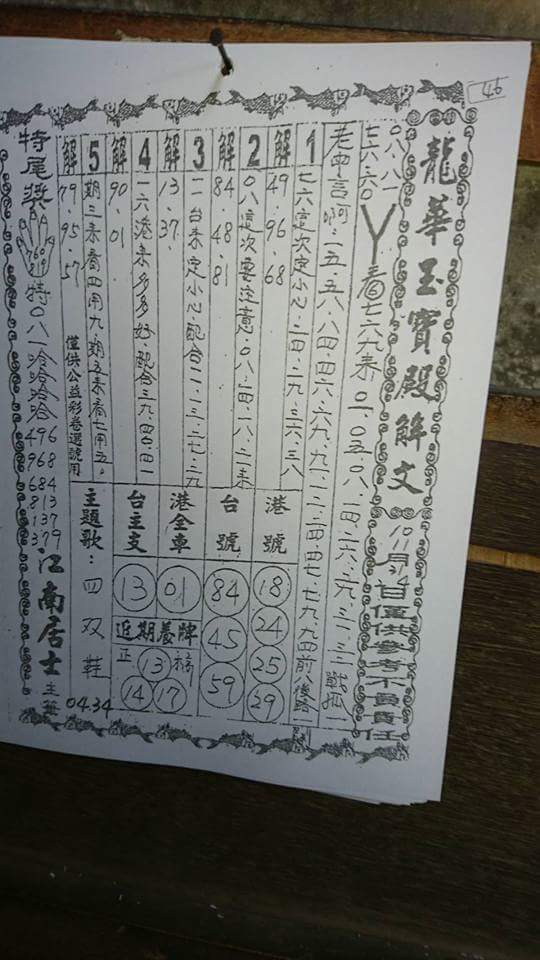 46
龍華玉寶殿解文
10月24日僅供參考不負責任
〇八.八一
七六.六〇
丫看七六九來.〇一.〇五.〇八.二四.二六.二九.三二.三三
老四言啊.一五.五八.八四.四六.六九.九一.一二.二四.四七.七九.九四前八後路一
1
七六定次定小心.二四.二九.三六.三八
解
49.96.68
2
〇八定次要注意.〇八.二四.二八.二六來
解
84.48.81
3
一台來定小心配合二一.二三.二七.二九
解
13.37.
4
一六港來多多好.配合三九.四〇.四一
解
90.01
5
期三來看四用九.期五來看七用五.
解
79.95.57
僅供公益彩卷選號用
港號
18
24
25
29
台號
84
45
59
港全車
01
台主支
13
近期養牌
正
13
14
17
主題歌：四双鞋
04.34
特尾獎
特〇八一洽洽哈哈
496
968
684
813
137
379
江南居士主筆